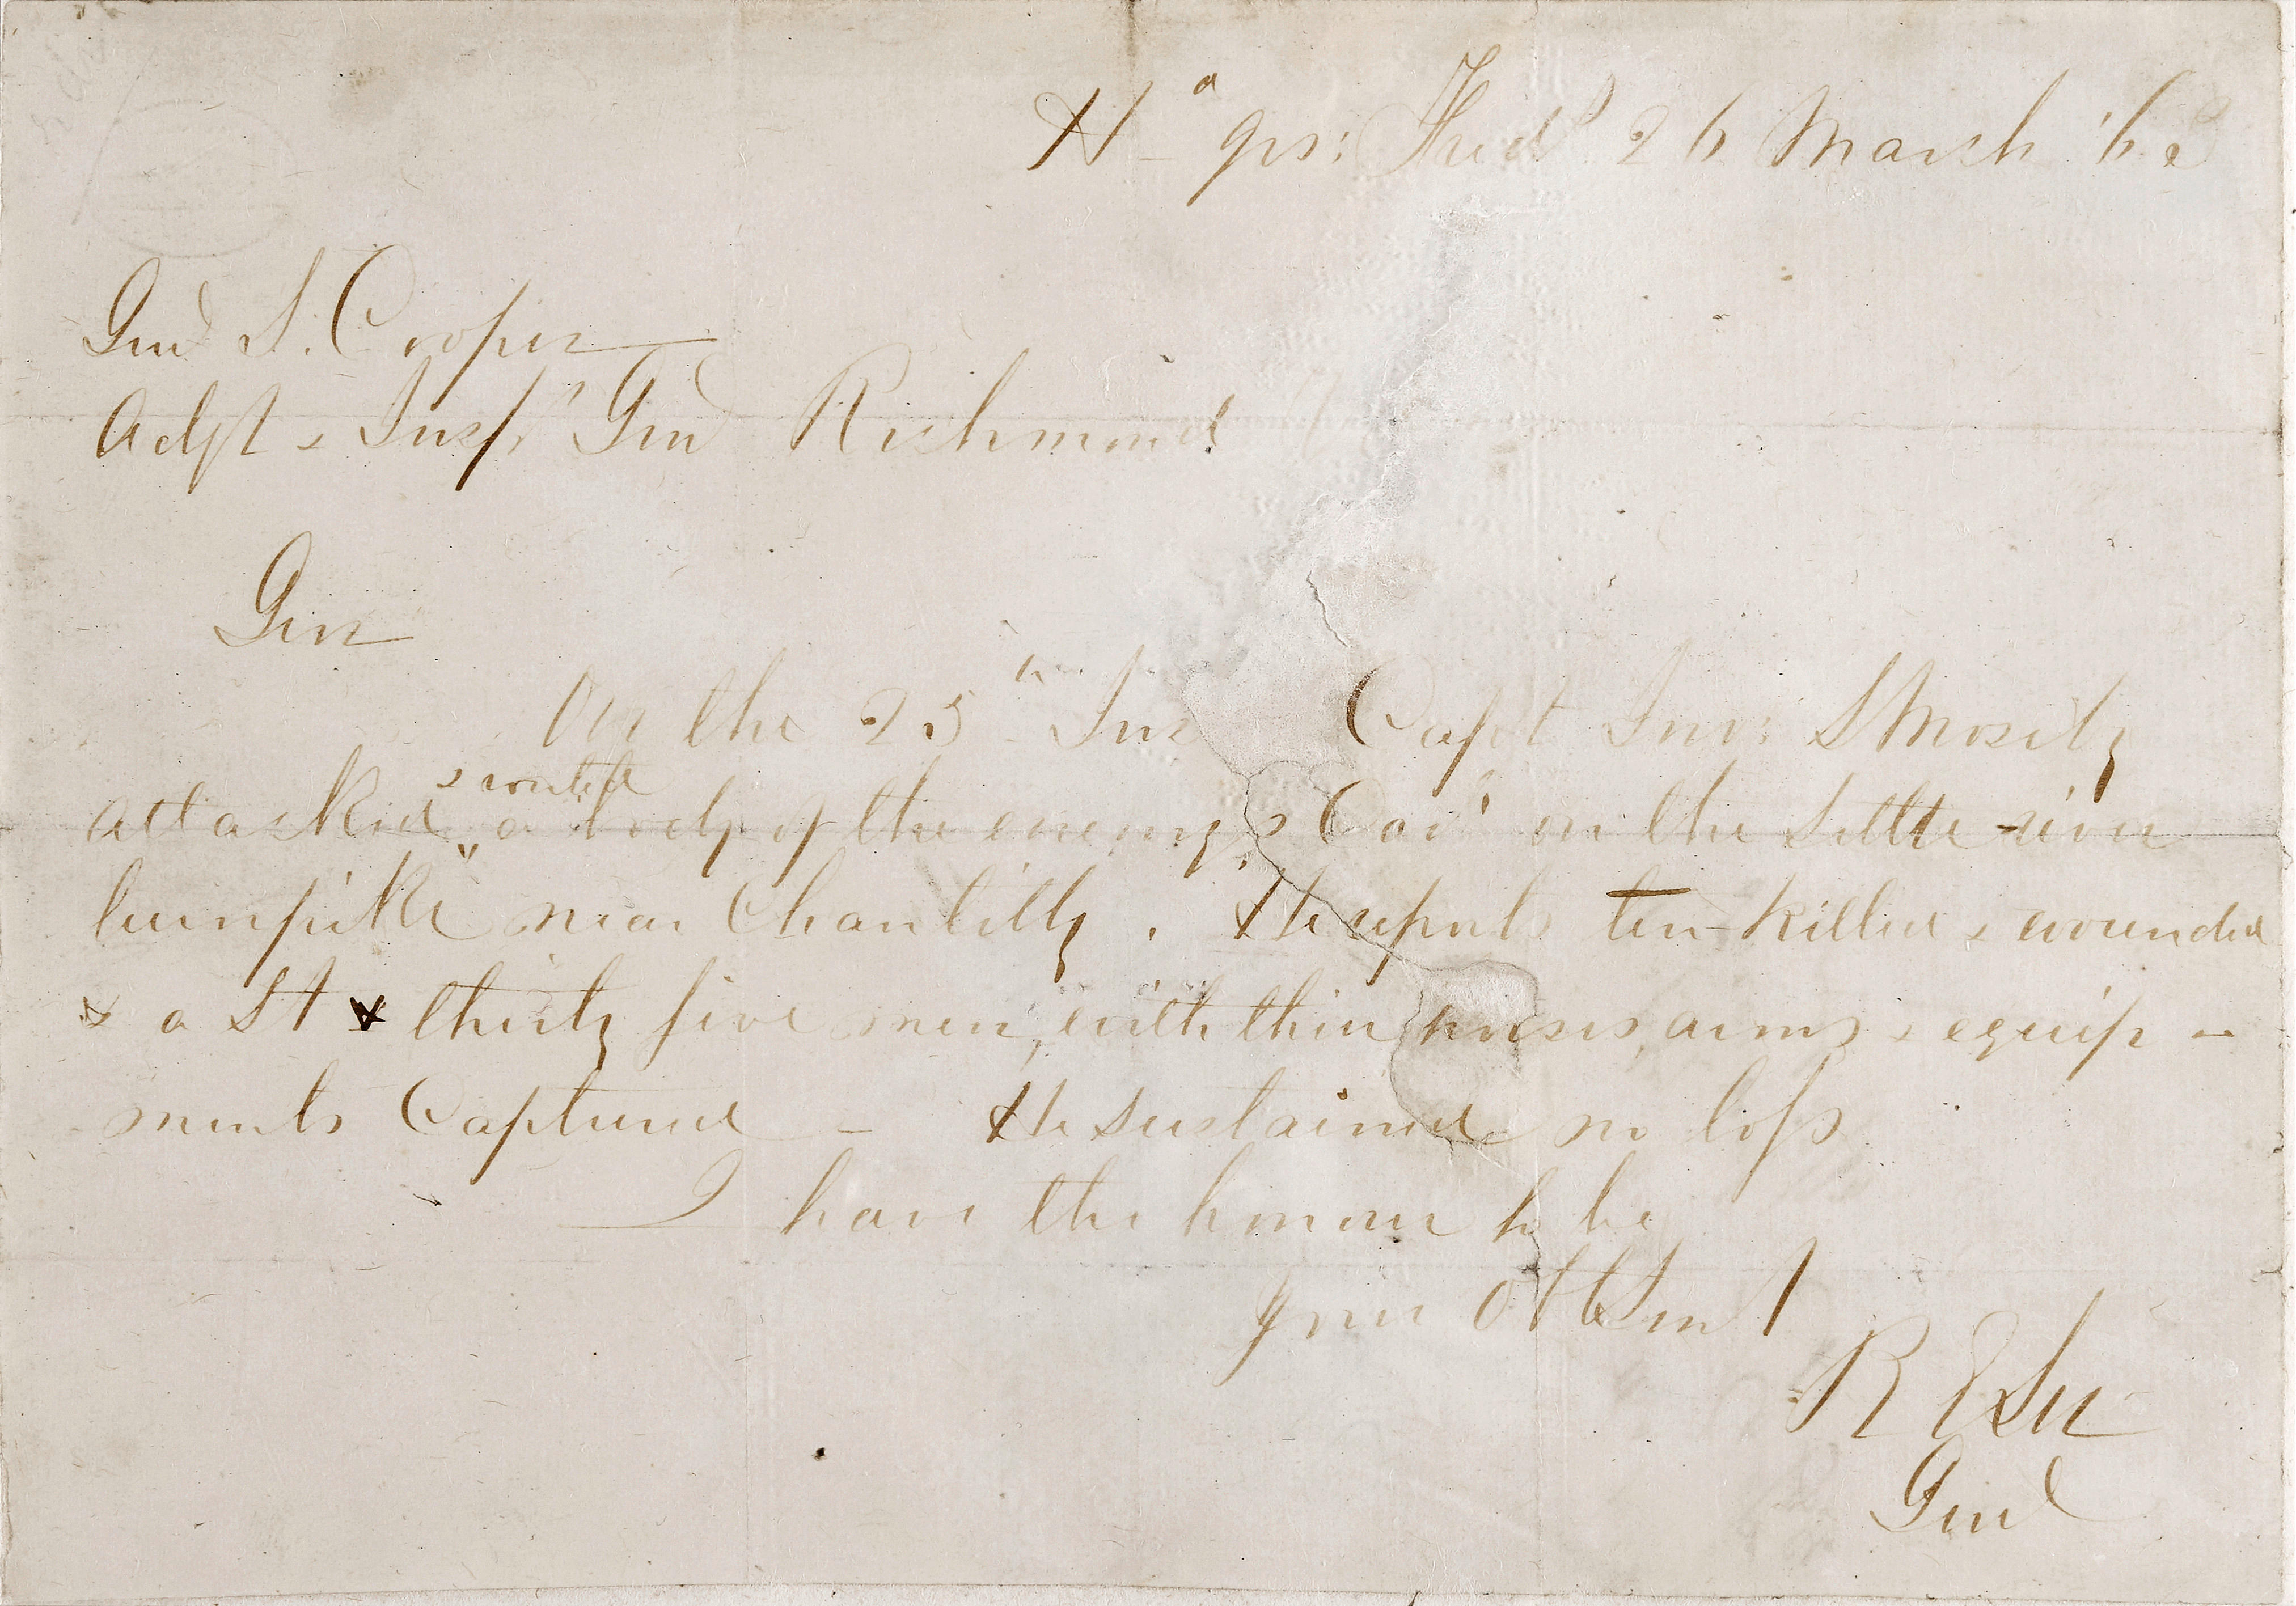 Hd qrs: Fredg 26 March '63
Genl S. Cooper
Adjt & Inspr Genl Richmond
Genl
On the 25th Ins Capt Jno: S Mosby
attacked & routed a body of the enemy's Cavy on the Little river
turnpike near Chantilly. He reports ten killed & wounded
& a Lt & thirty five men, with their horses, arms & equip-
ments Captured - He sustained no loss
I have the honour to be
your obt Servt
R E Lee
Genl